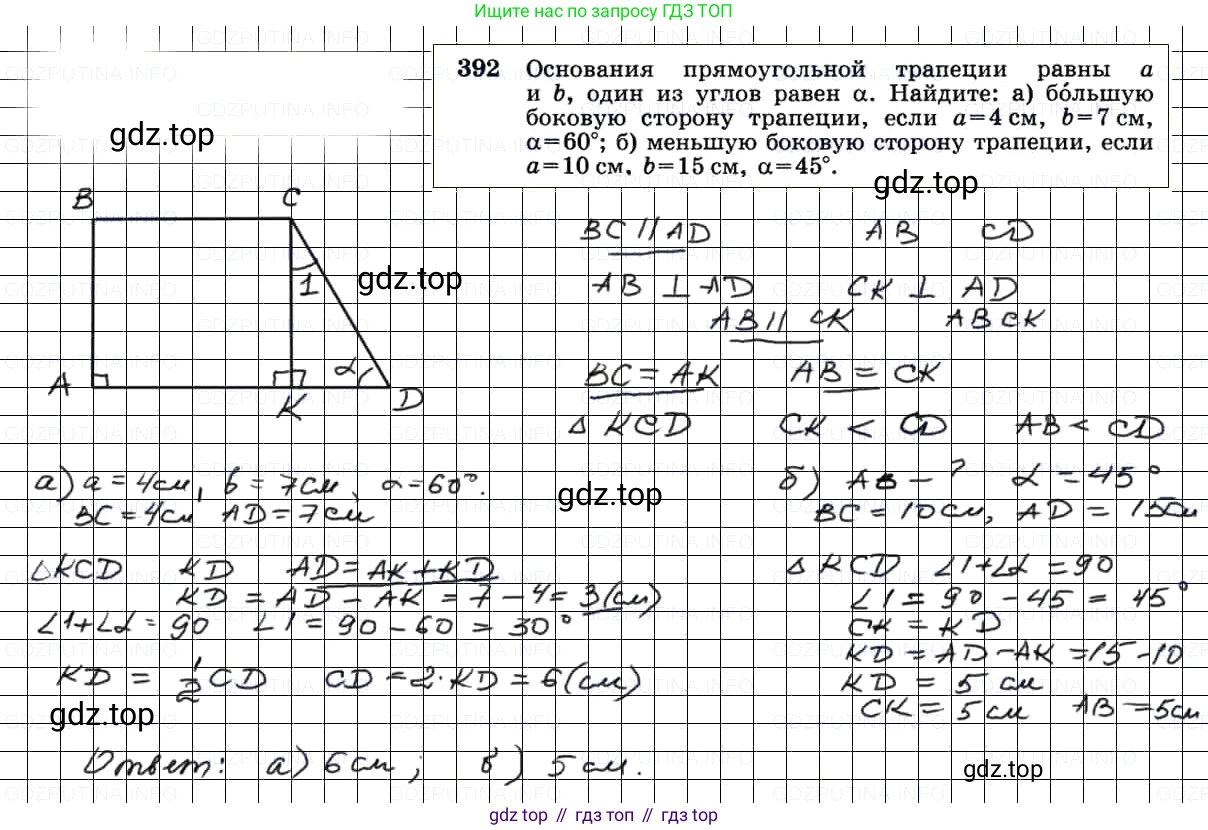 Ищите нас по запросу ГДЗ ТОП
GDZPUTINA.INFO
392 Основания прямоугольной трапеции равны a
и b, один из углов равен α. Найдите: а) бо́льшую
боковую сторону трапеции, если a=4 см, b=7 см,
α=60°; б) меньшую боковую сторону трапеции, если
a=10 см, b=15 см, α=45°.
gdz.top
gdz.top
B C
1
gdz.top
A K α D
BC // AD AB CD
AB ⊥ AD CK ⊥ AD
AB // CK ABCK
BC = AK AB = CK
△ KCD CK < CD AB < CD
а) a = 4см, b = 7см, α=60°.
BC = 4см AD = 7см
gdz.top
△KCD KD AD = AK + KD
KD = AD - AK = 7 - 4 = 3 (см)
∠1+∠α = 90 ∠1 = 90 - 60 = 30°
KD = 1/2 CD CD = 2·KD = 6 (см)
gdz.top
б) AB - ? α = 45°
BC = 10см, AD = 15см
△ KCD ∠1+∠α = 90
∠1 = 90 - 45 = 45°
CK = KD
KD = AD - AK = 15 - 10
KD = 5 см
CK = 5 см AB = 5см
Ответ: а) 6см ; б) 5 см.
gdz.top
gdz.top // гдз топ // gdz.top